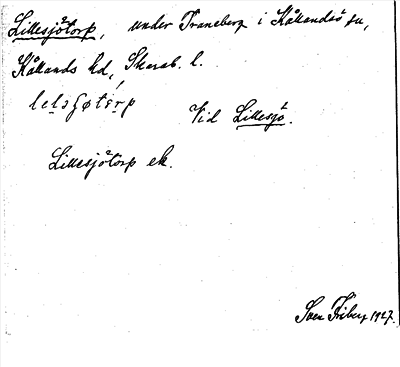 Lillesjötorp, under Traneberg i Kållandsö sn,
Kållands hd, Skarab. l.
Vid Lillesjö.
Lillesjötorp ek.
Sven Friberg 1927.